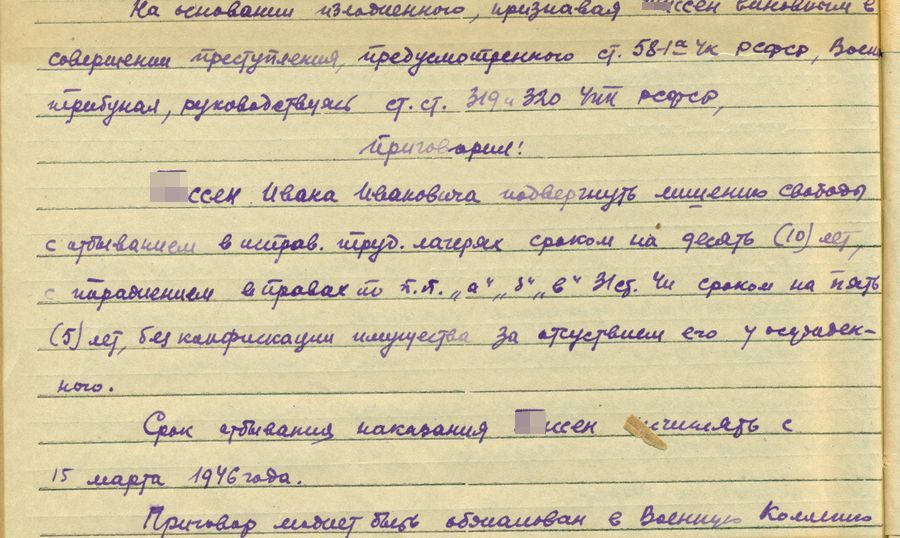 На основании изложенного, признавая ссен виновным в
совершении преступления, предусмотренного ст. 58-1а УК РСФСР, Воен
трибунал, руководствуясь ст.ст. 319 и 320 УПК РСФСР,
Приговорил:
ссен Ивана Ивановича подвергнуть лишению свободы
с отбыванием в исправ. труд. лагерях сроком на десять (10) лет,
с поражением в правах по п.п. „а" „б" „в" 31 ст. УК сроком на пять
(5) лет, без конфискации имущества за отсуствием его у осужден-
ного.
Срок отбывания наказания ссен исчислять с
15 марта 1946 года.
Приговор может быть обжалован в Военную Коллегию